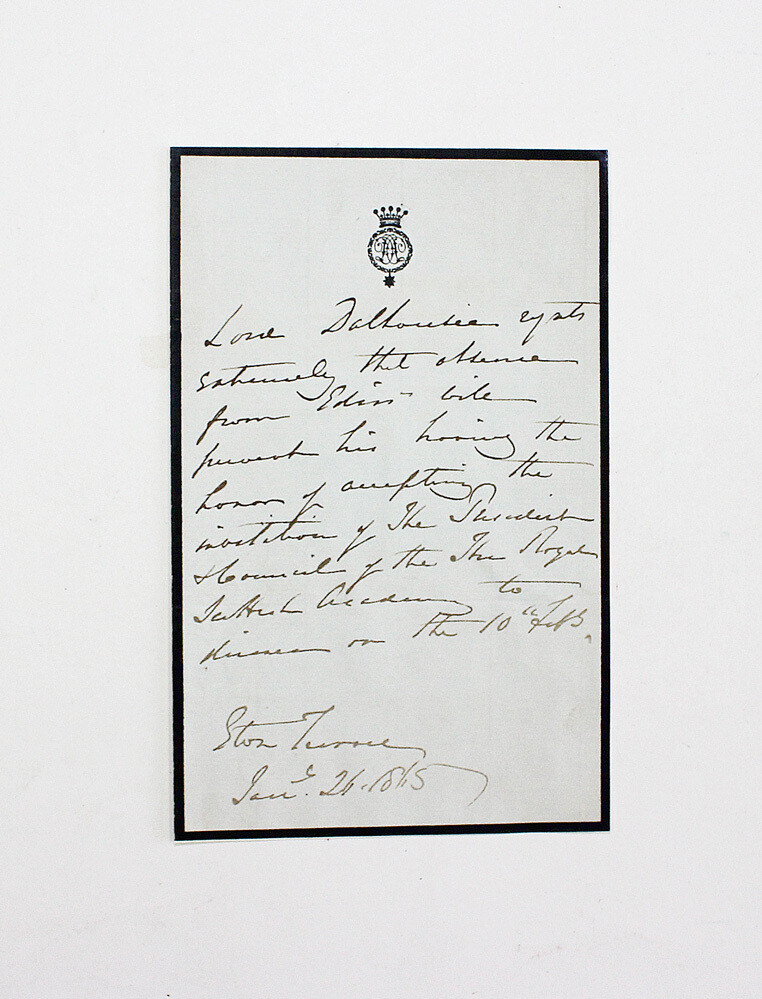 Lord Dalhousie regrets
extremely that absence
from Edinr will
prevent his having the
honor of accepting the
invitation of The President
& Council of the The Royal
Scottish Academy to
dinner on the 10th Feb.
Eton Terrace
Jany. 26. 1865